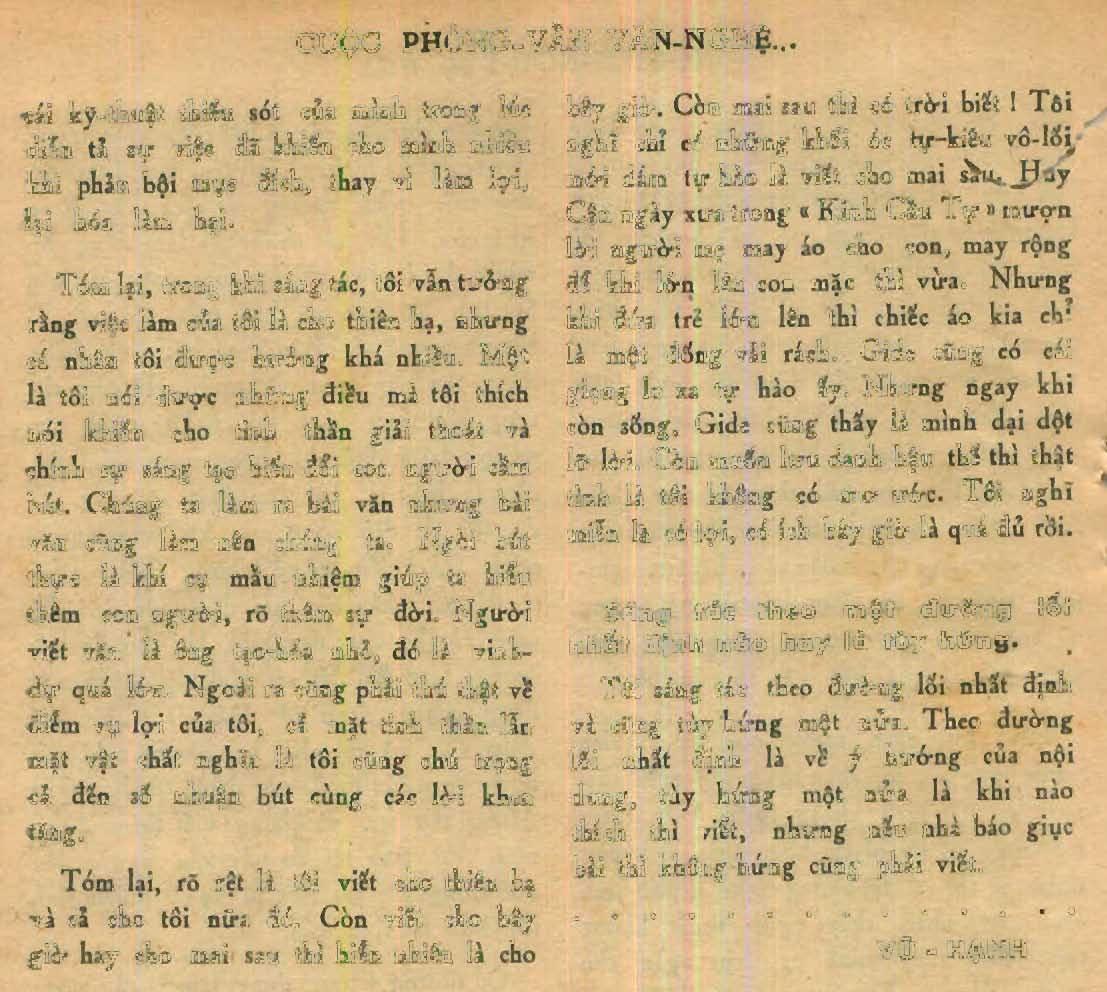 CUỘC PHỎNG-VẤN VĂN-NGHỆ...
cái kỹ-thuật thiếu sót của mình trong lúc
diễn tả sự việc đã khiến cho mình nhiều
khi phản bội mục đích, thay vì làm lợi,
lại hóa làm hại.
Tóm lại, trong khi sáng tác, tôi vẫn tưởng
rằng việc làm của tôi là cho thiên hạ, nhưng
cá nhân tôi được hưởng khá nhiều. Một
là tôi nói được những điều mà tôi thích
nói khiến cho tinh thần giải thoát và
chính sự sáng tạo biến đổi con người cầm
bút. Chúng ta làm ra bài văn nhưng bài
văn cũng làm nên chúng ta. Ngòi bút
thực là khí cụ mầu nhiệm giúp ta hiểu
thêm con người, rõ thêm sự đời. Người
viết văn là ông tạo-hóa nhỏ, đó là vinh-
dự quá lớn. Ngoài ra cũng phải thú thật về
điểm vụ lợi của tôi, cả mặt tinh thần lẫn
mặt vật chất nghĩa là tôi cũng chú trọng
cả đến số nhuận bút cùng các lời khen
tặng.
Tóm lại, rõ rệt là tôi viết cho thiên hạ
và cả cho tôi nữa đó. Còn viết cho bây
giờ hay cho mai sau thì hiển nhiên là cho
bây giờ. Còn mai sau thì có trời biết ! Tôi
nghĩ chỉ có những khối óc tự-kiêu vô-lối
mới dám tự hào là viết cho mai sau. Huy
Cận ngày xưa trong « Kinh Cầu Tự » mượn
lời người mẹ may áo cho con, may rộng
để khi lớn lên con mặc thì vừa. Nhưng
khi đứa trẻ lớn lên thì chiếc áo kia chỉ
là một đống vải rách. Gide cũng có cái
giọng lo xa tự hào ấy. Nhưng ngay khi
còn sống, Gide cũng thấy là mình dại dột
lỡ lời. Còn muốn lưu danh hậu thế thì thật
tình là tôi không có mơ ước. Tôi nghĩ
miễn là có lợi, có ích bây giờ là quá đủ rồi.
Sáng tác theo một đường lối
nhất định nào hay là tùy hứng.
Tôi sáng tác theo đường lối nhất định
và cũng tùy hứng một nửa. Theo đường
lối nhất định là về ý hướng của nội
dung, tùy hứng một nửa là khi nào
thích thì viết, nhưng nếu nhà báo giục
bài thì không hứng cũng phải viết.
. . . . . . . . . . . . . .
VŨ - HẠNH